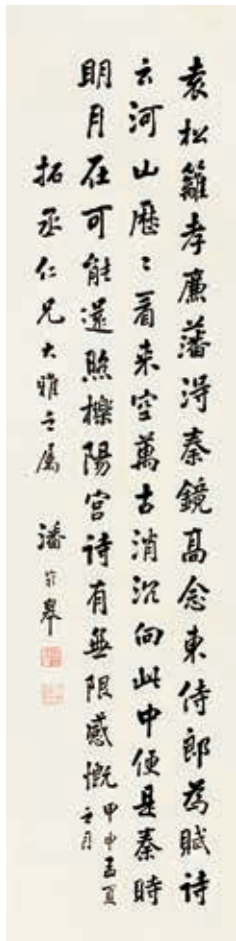 袁松籬孝廉藩淂秦鏡高念東侍郎為賦詩
云河山歷〻看來空萬古消沉向此中便是秦時
明月在可能還照櫟陽宮詩有無限感慨甲申孟夏之月
拓丞仁兄大雅之屬 潘齡皋